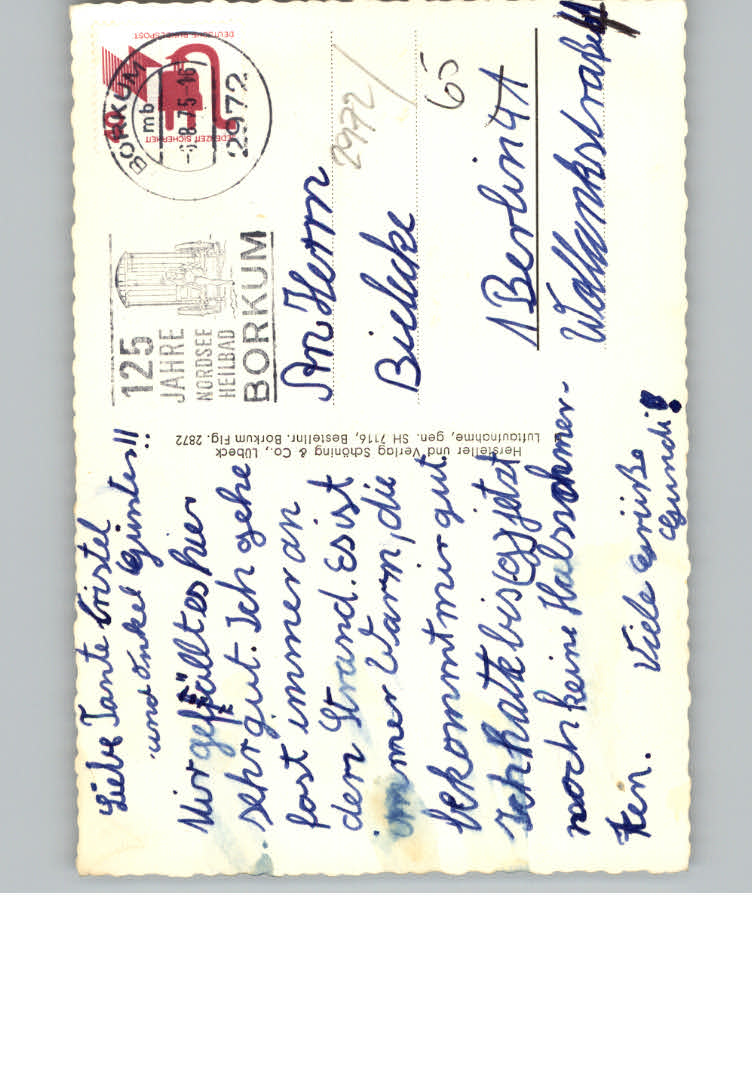 Liebe Tante Cristel
und Onkel Günter!!
Mir gefällt es hier
sehr gut. Ich gehe
fast immer an
den Strand. Es ist
immer Warm, die
bekommt mir gut.
Ich hatte bis jetzt
noch keine Halsschmer-
zen. Viele Grüße
Gundi!
Hersteller und Verlag Schöning & Co., Lübeck
Luftaufnahme, gen. SH 7116, Bestellnr. Borkum Flg. 2872
125
JAHRE
NORDSEE
HEILBAD
BORKUM
BORKUM
mb
8.75-16
2972
DEUTSCHE BUNDESPOST
JEDERZEIT SICHERHEIT
40
An Herrn
2972
Bielicke
65
1 Berlin 41